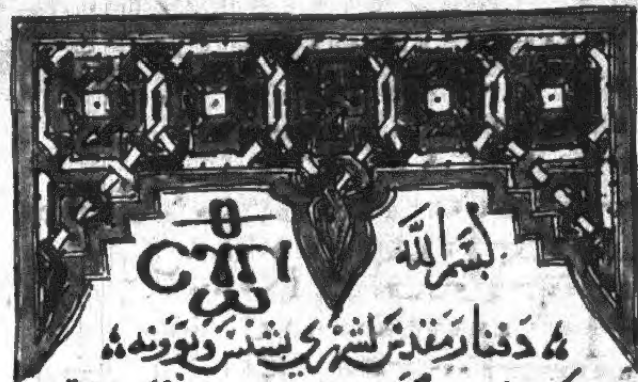 ⲥⲩⲛ ⲑⲱ بسم الله
دفنار مقدس لشهري بشنس وبوونه